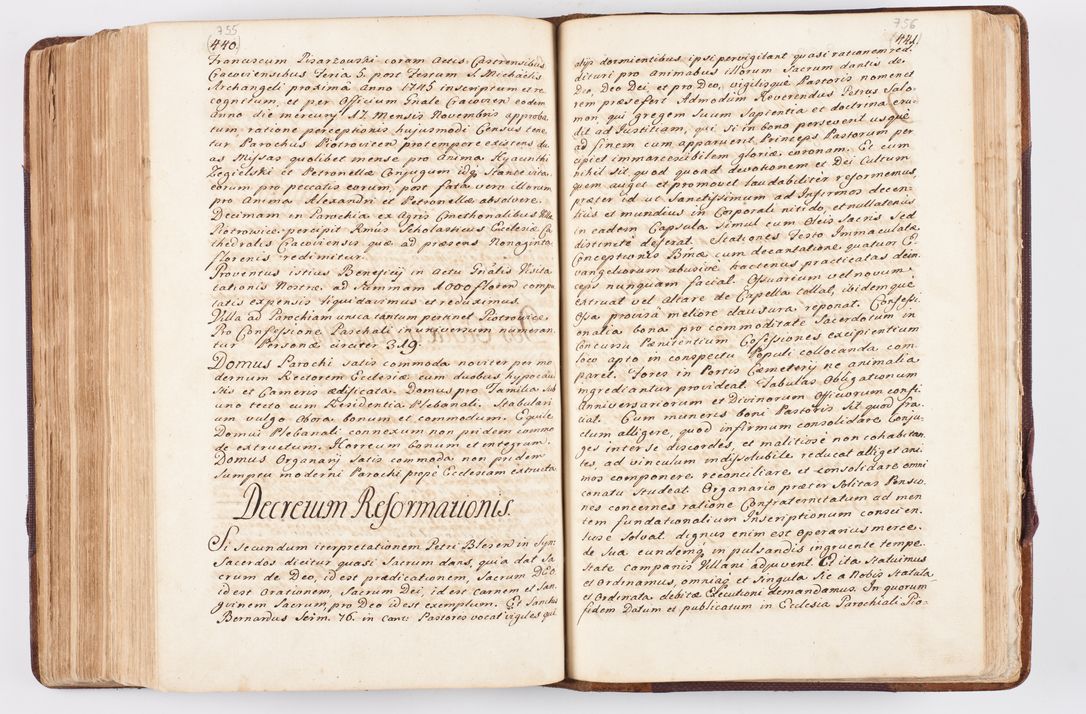 755
440.
Franciscum Pisarzowski coram Actis Castrensibus
Cracoviensibus Feria 5. post Festum S. Michaëlis
Archangeli proxima Anno 1745 inscriptum et re
cognitum, et per Officium Gnale Cracovien eodem
anno die mercurÿ 17. Mensis Novembris approba
tum, ratione perceptionis hujusmodi Census tene
tur Parochus Piotrovicen protempore existens du
as Missas quolibet mense pro Anima Hyacinthi
Zegielski et Petronellæ Conjugum idq stante vita
eorum pro peccatis eorum, post fata vero illorum
pro Anima Alexandri et Petronellæ absolvere.
Decimam in Parochia ex Agris Cmethonalibus Villæ
Piotrowice percipit Rmus Scholasticus Ecclesiæ Ca
thedralis Cracoviensis quæ ad præsens Nonaginta
florenis redimitur.
Proventus istius Beneficÿ in Actu Gnalis Visita
tationis Nostræ ad Summam 1000 floren compu
tatis expensis liquidavimus et reduximus.
Villa ad Parochiam unica tantum pertinet Piotrovice
Pro Confessione Paschali in universum numeran
tur Personæ circiter 319.
Domus Parochi satis commoda noviter per mo
dernum Rectorem Ecclesiæ cum duobus hypocau
stis et Cameris ædificata. Domus pro Familia sub
uno tecto cum Residentia Plebanali. Stabulari
um vulgo Obora bonum et commodum. Equile
Domui Plebanali connexum non pridem commo
de extructum. Horreum bonum et integrum.
Domus Organarÿ satis commoda non pridem
Sumptu moderni Parochi prope Ecclesiam extructa
Decretum Reformationis.
Si secundum iterpretationem Petri Bleren in Sym
Sacerdos dicitur quasi Sacrum dans, quia dat Sa
crum de Deo, id est prædicationem, Sacrum DEO
id est Orationem, Sacrum Dei, id est carnem et San
guinem Sacrum pro Deo id est exemplum. Et Sanctus
Bernardus Serm. 76. in Cant. Pastores vocat vigiles qui
756
441.
alÿs dormientibus ipsi pervigilant quasi rationem red
dituri pro animabus illorum Sacrum dantis de
Deo, Deo Dei, et pro Deo, vigilisque Pastoris nomen et
rem præsefert Admodum Reverendus Petrus Salo
mon, qui gregem Suum Sapientia et doctrina eru
dit ad Justitiam, qui si in bono perseverit usque
ad finem cum apparuerit Princeps Pastorum per
cipiet immarcesibilem gloriæ coronam. Et cum
nihil sit quod quoad devotionem et Dei Cultum
quem auget et promovet laudabiliter reformemus,
præter id ut Sanctissimum ad Infirmos decen
tius et mundius in Corporali nitido, et nullatenus
in eadem Capsula Simul cum Oleis Sacris Sed
distincte deferat. Stationes Festo Immaculatæ
Conceptionis Bmæ cum decantatione quatuor E
vangeliorum abusive hactenus practicatas dein
ceps nunquam faciat. Ossuarium vel novum
extruat vel Altare de Capella tollat, ibidemque
Ossa provisa meliore clausura reponat. Confessi
onalia bona pro commoditate Sacerdotum in
Concursu Pænitentium Cofessiones excipientium
loco apto in conspectu Populi collocanda com
paret. Fores in Portis Cæmeterÿ ne animalia
ingrediantur provideat. Tabulas Obligationum
Anniversariorum et Divinorum Officiorum confi
ciat. Cum muneris boni Pastoris sit quod fra
ctum alligere, quod infirmum consolidare Conju
ges inter se discordes, et malitiose non cohabitan
tes, ad vinculum indissolubile reducat alliget ani
mos componere, reconciliare et consolidare omni
conatu Studeat. Organario præter Solitas Pensio
nes concernes ratione Confraternitatum ad men
tem fundationalium Inscriptionum conscien
tiose Solvat dignus enim est operarius merce
de sua eundemq in pulsandis ingruente tempe
state campanis Villani adjuvent. Et ita Statuimus
et Ordinamus, omniaq et Singula Sic a Nobis Statuta
et Ordinata debitæ Executioni demandamus. In quorum
fidem Datum et publicatum in Ecclesia Parochiali Pio-